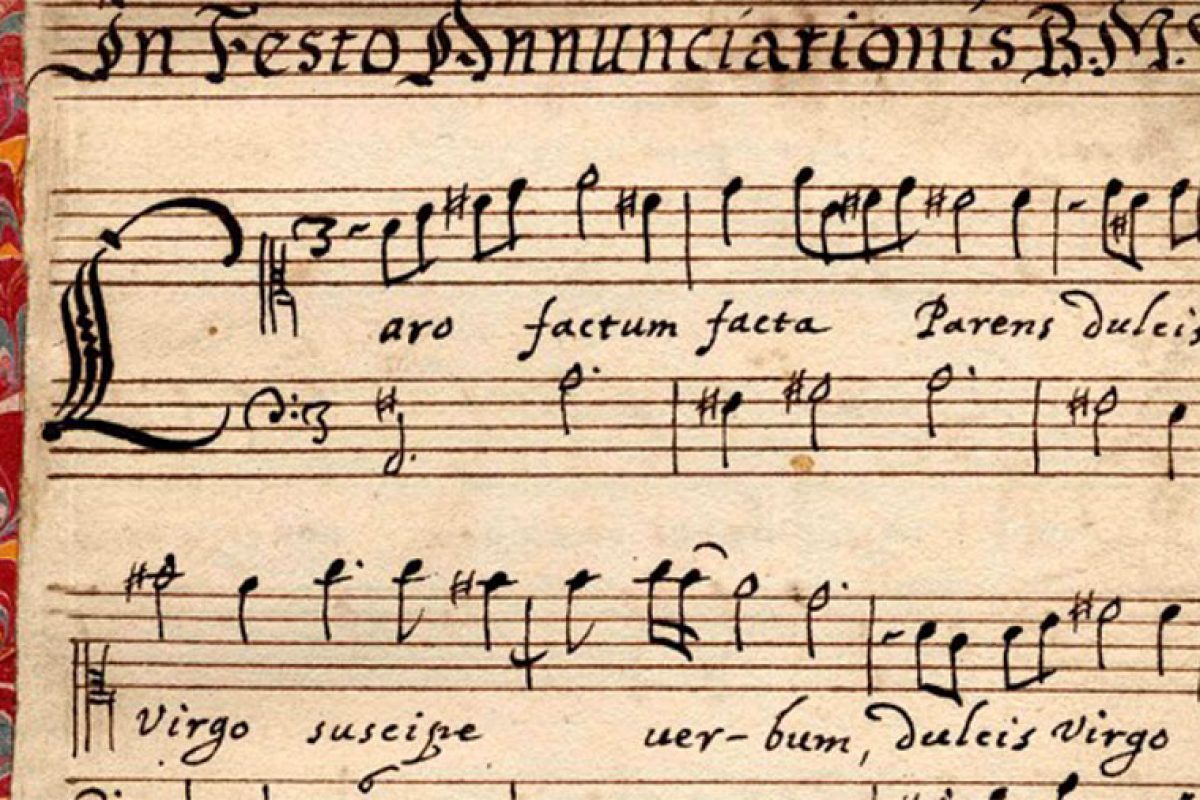 In Festo Annunciationis B.M.
Caro factum facta Parens dulcis
Virgo suscipe uer-bum, dulcis Virgo